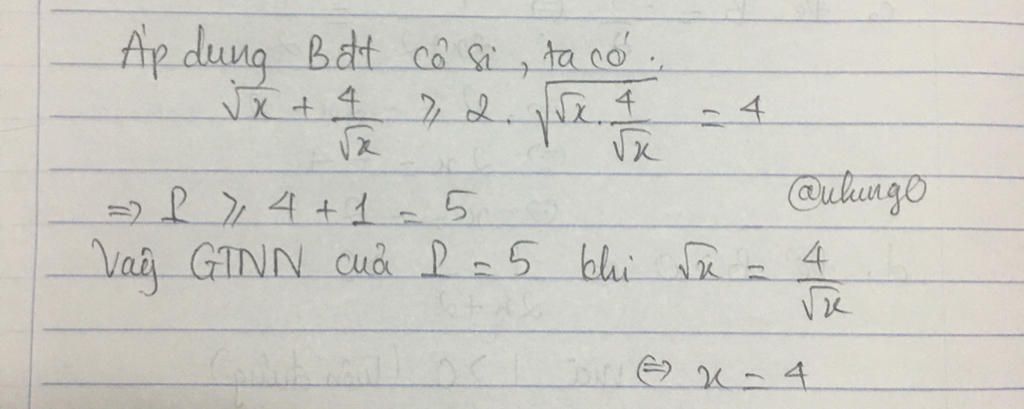 Áp dụng Bđt cô si, ta có:
√x + 4/√x ≥ 2.√(√x . 4/√x) = 4
⇒ P ≥ 4 + 1 = 5
@nhung0
Vậy GTNN của P = 5 khi √x = 4/√x
⇔ x = 4